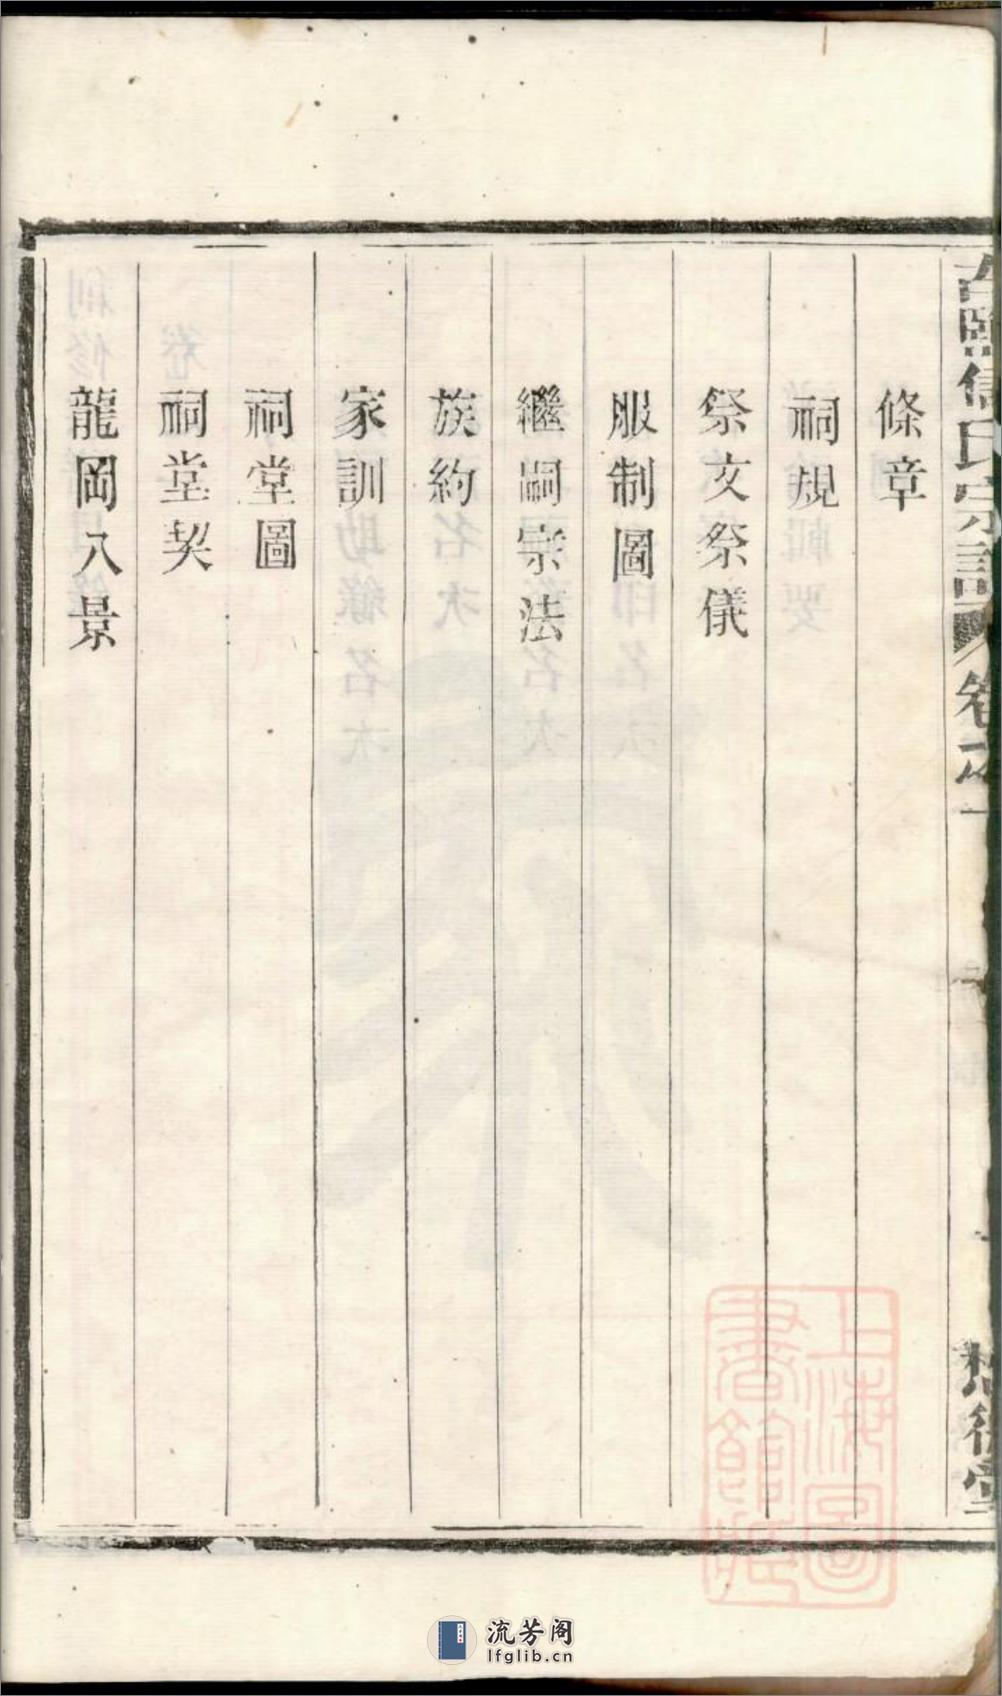 條章
祠規
祭文祭儀
服制圖
繼嗣宗法
族約
家訓
祠堂圖
祠堂契
龍岡八景
氏宗譜
卷之一
上海圖書館藏
流芳阁
lfglib.cn